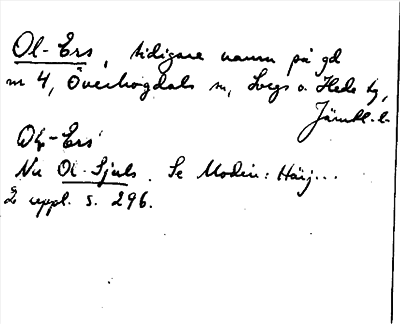 Ol-Ers, tidigare namn på gd
nr 4, Överhogdals sn, Svegs o. Hede tg,
Jämtl. l.
Ol-Ers
Nu Ol-Sjuls. Se Modin: Härj...
2 uppl. s. 296.